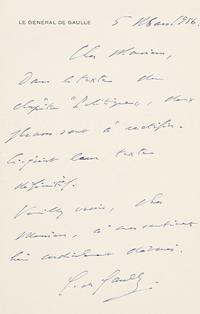 LE GÉNÉRAL DE GAULLE
5 Mars 1956.
Cher Monsieur,
Dans le texte du
chapitre "Politique", deux
phrases sont à rectifier.
Ci-joint leur texte
définitif.
Veuillez croire, Cher
Monsieur, à mes sentiments
bien cordialement dévoués.
C. de Gaulle.